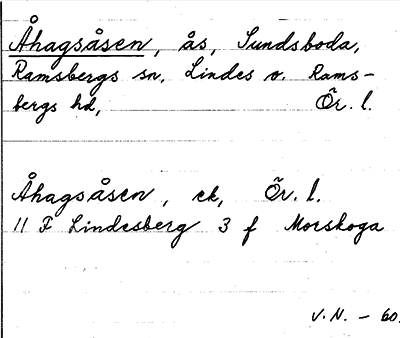 Åhagsåsen, ås, Sundsboda,
Ramsbergs sn, Lindes o. Rams-
bergs hd, Ör. l.
Åhagsåsen, ek, Ör. l.
11 F Lindesberg 3 f Morskoga
V.N. - 60.